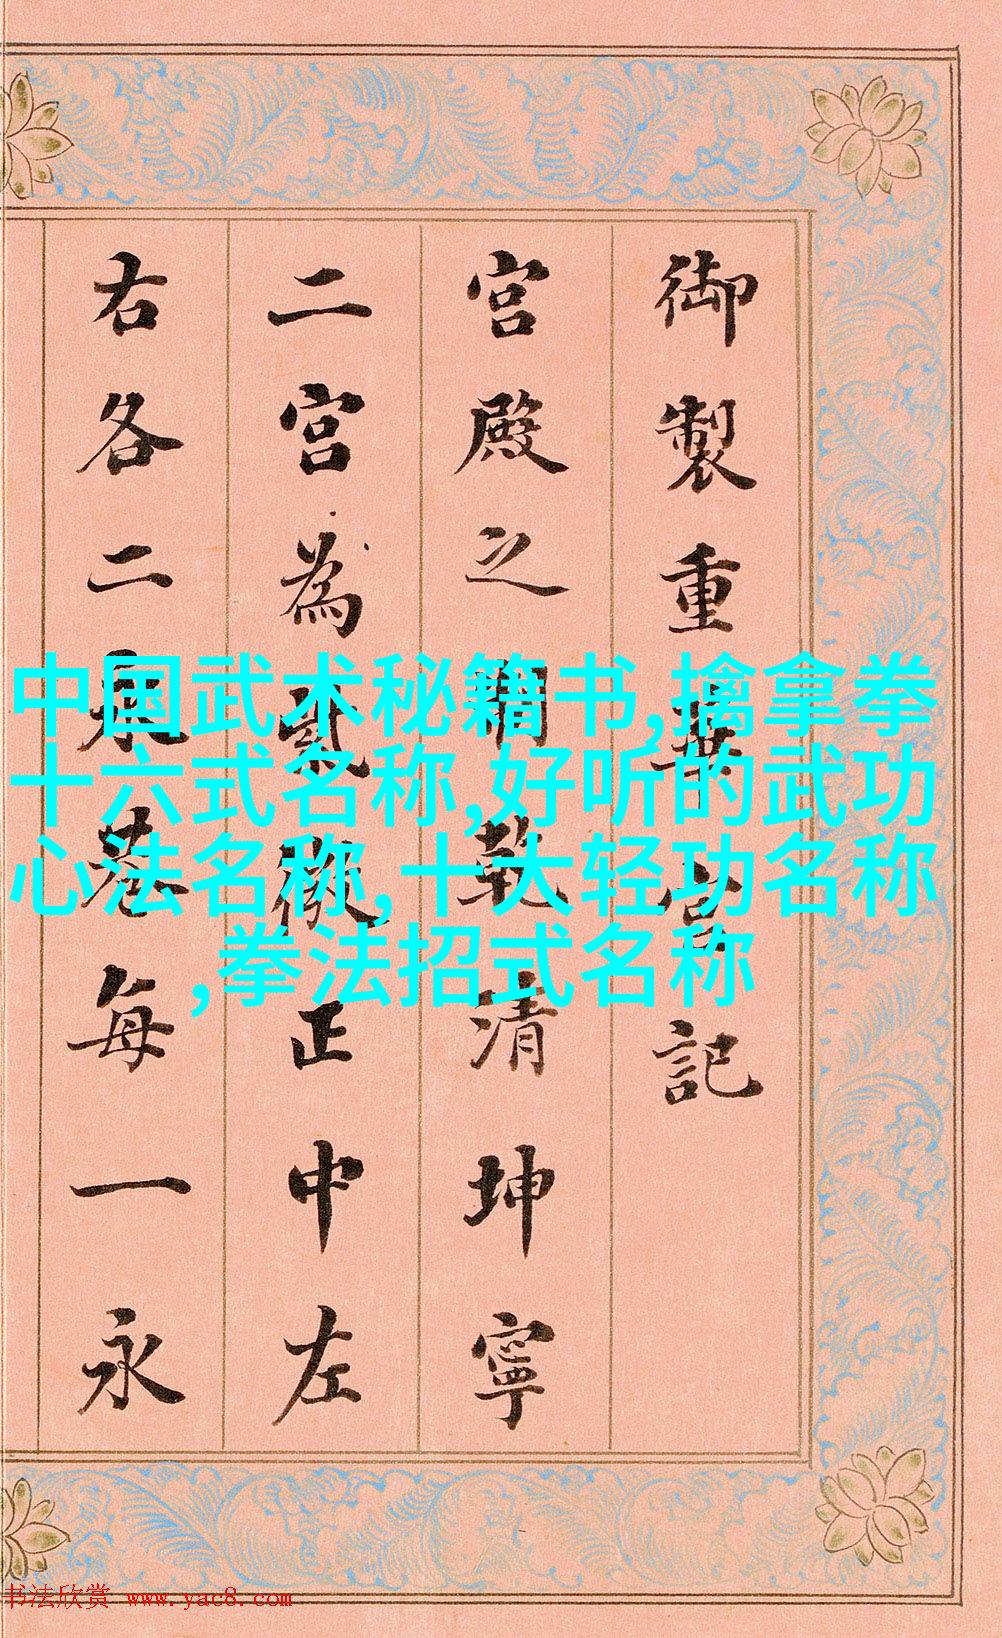 御製重華宮記
宮殿之閒乾清坤寧
二宮為紫微正中左
右各二永巷每一永
中国武术秘籍书,擒拿拳
十六式名称,好听的武功
心法名称,十大轻功名称
,拳法招式名称
书法欣赏 www.yac8.com